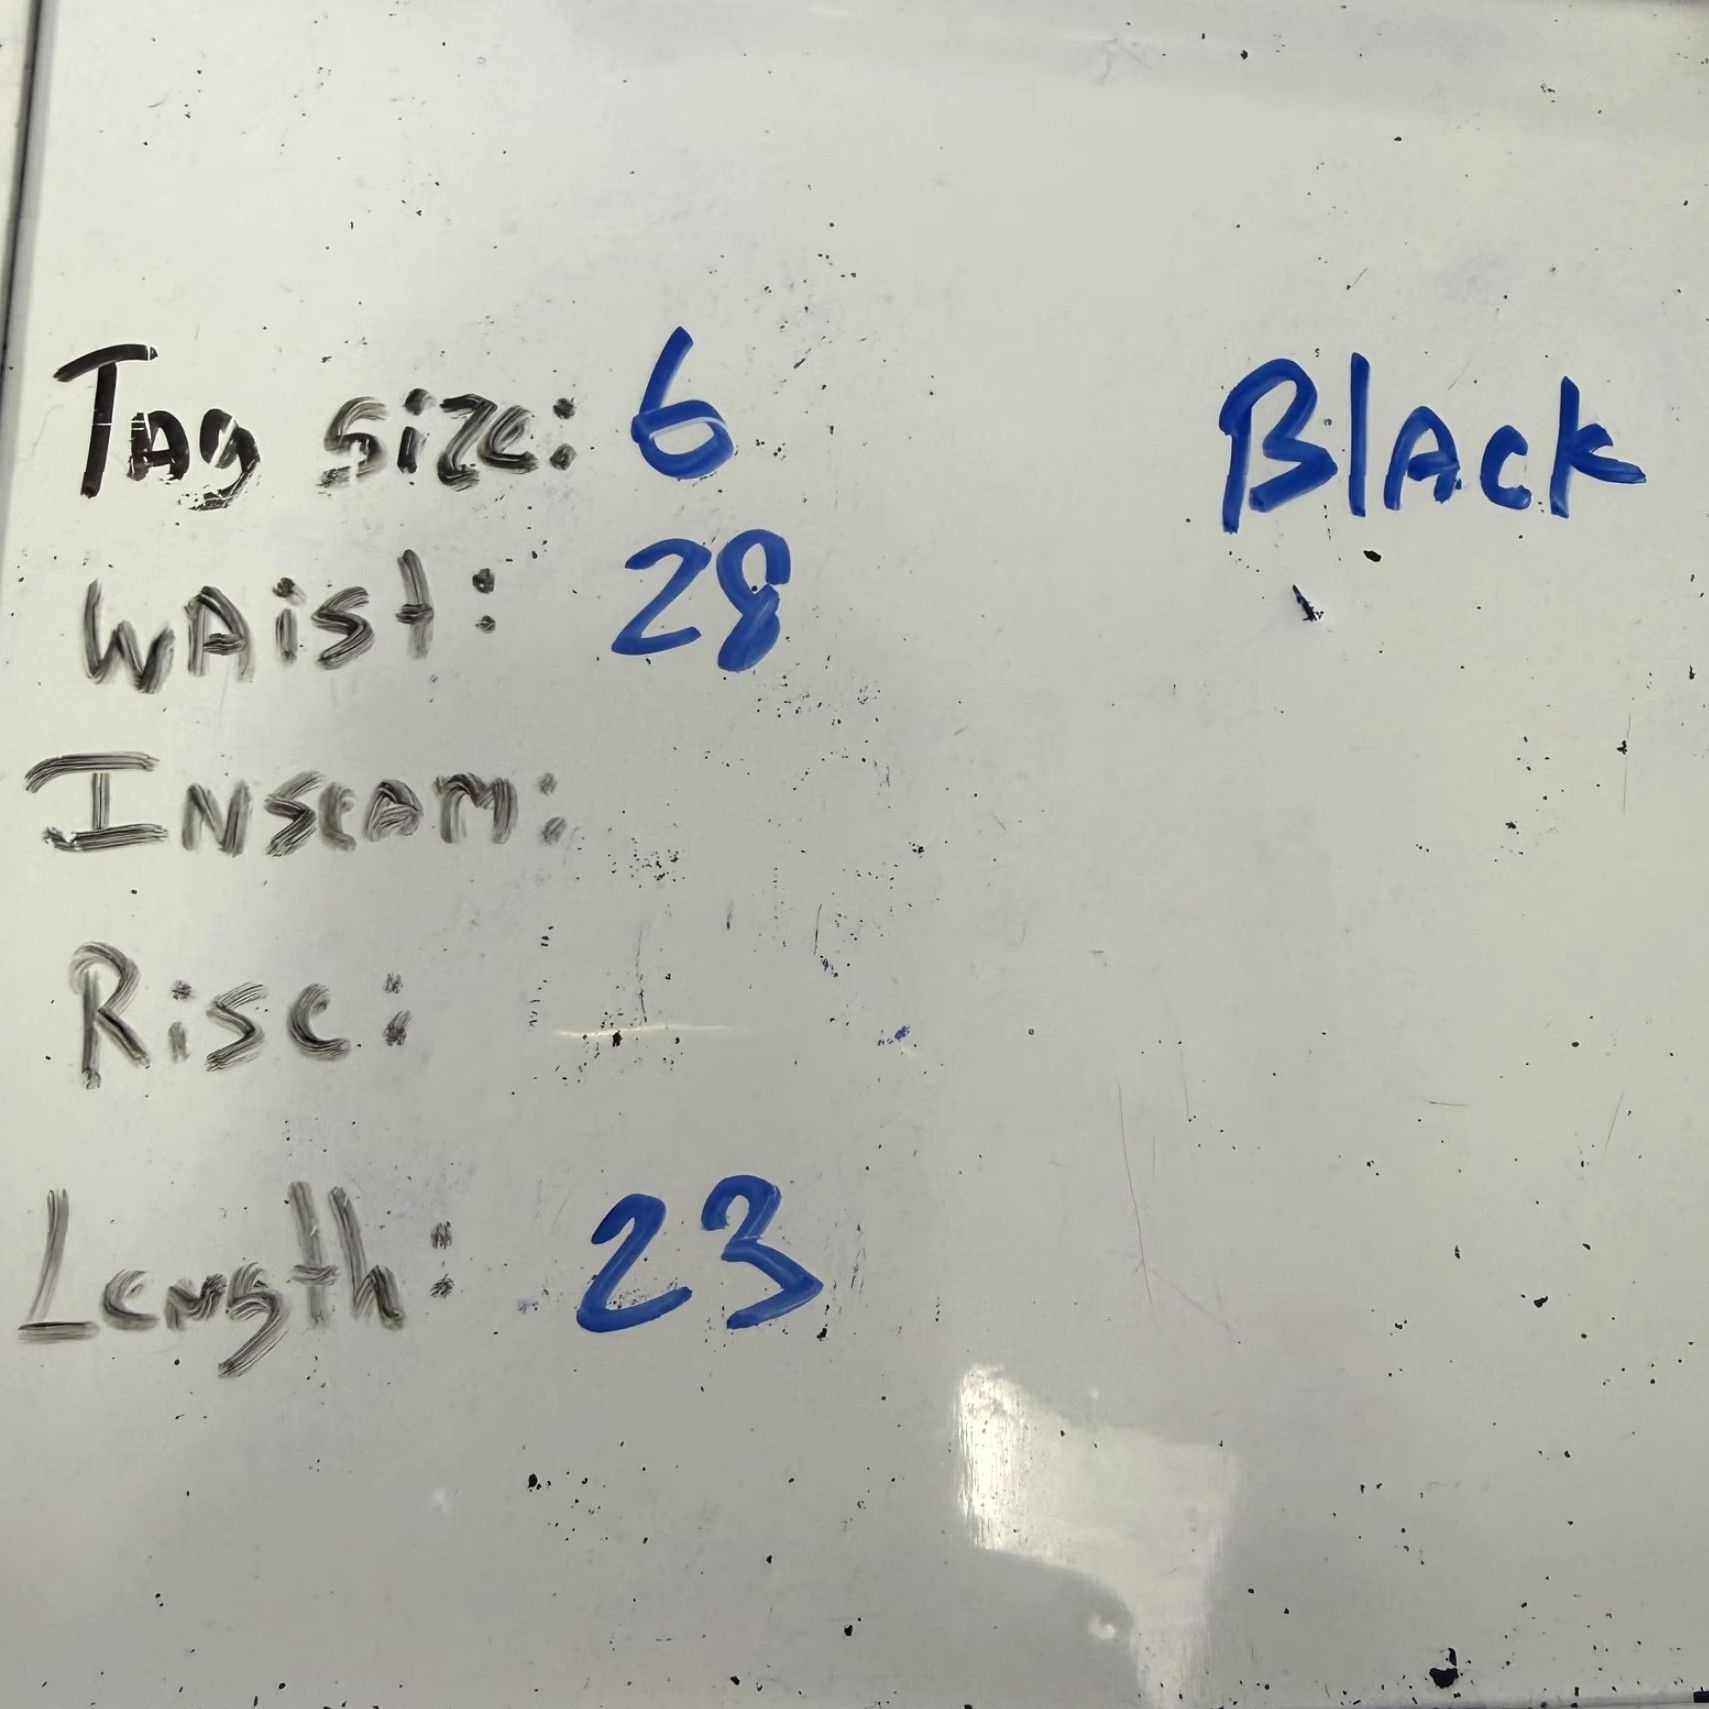 Tag size: 6 Black
Waist: 28
Inseam:
Rise:
Length: 23